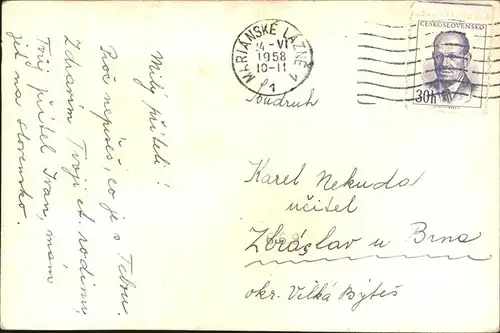 Milý příteli!
Proč nepíšeš, co je s Tebou.
Zdravím Tvoji ct. rodinu,
Tvůj přítel Ivan, mám
jet na Slovensko.
MARIÁNSKÉ LÁZNĚ 1
24-VI
1958
10-11
ČESKOSLOVENSKO
30h
Soudruh
Karel Nekuda
učitel
Zbráslav u Brna
okr. Velká Býteš